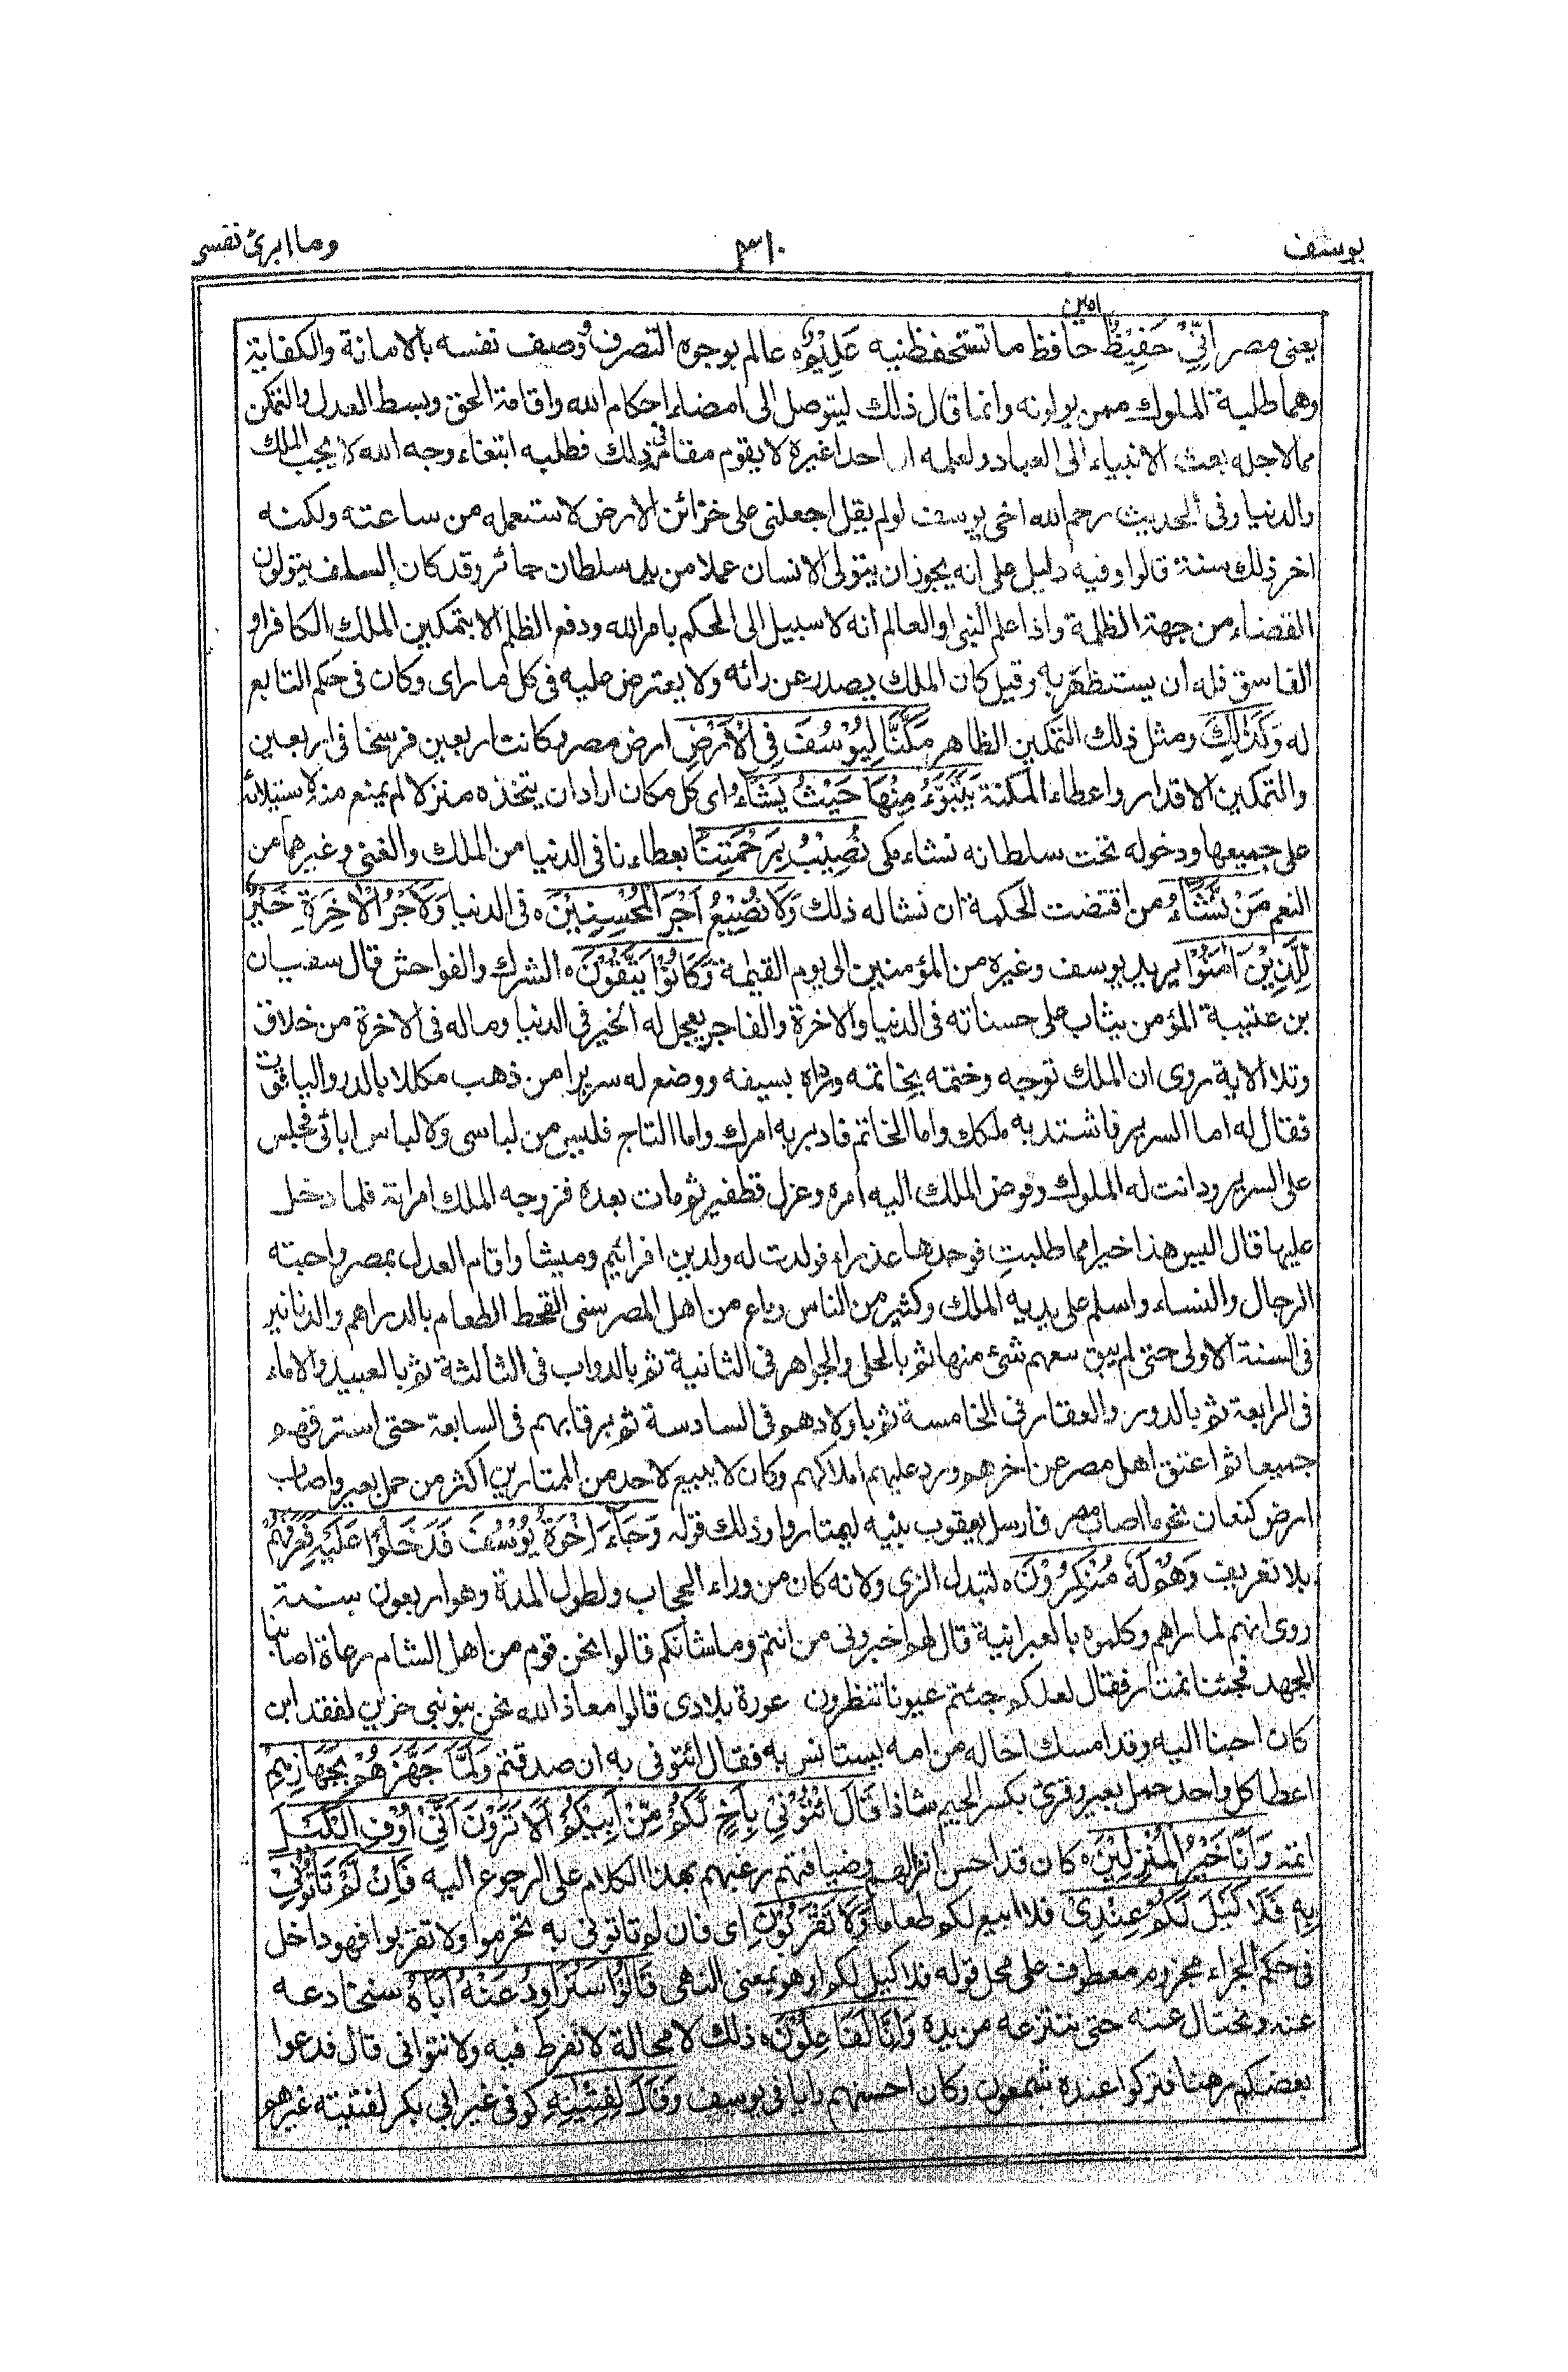 يوسف
٣١٠
وما ابرئ نفسى
امين
يعنى مصر اِنِّىْ حَفِيْظٌ حافظ ما تستحفظنيه عَلِيْمٌ ه عالم بوجوه التصرف وصف نفسه بالامانة والكفاية
وهما طلبة الملوك ممن يولونه وانما قال ذلك ليتوصل الى امضاء احكام الله واقامة الحق وبسط العدل والتمكن
مما لاجله بعث الانبياء الى العباد ولعلمه ان احدا غيره لا يقوم مقامه فى ذلك فطلبه ابتغاء وجه الله لا يحب الملك
والدنيا وفى الحديث رحم الله اخى يوسف لو لم يقل اجعلنى على خزائن الارض لاستعمله من ساعته ولكنه
اخر ذلك سنة قالوا وفيه دليل على انه يجوز ان يتولى الانسان عملا من يد سلطان جائر وقد كان السلف يتولون
القضاء من جهة الظلمة واذا علم النبى او العالم انه لا سبيل الى الحكم بامر الله ودفع الظلم الا بتمكين الملك الكافر او
الفاسق فله ان يستظهر به وقيل كان الملك يصدر عن رائه ولا يعترض عليه فى كل ما راى وكان فى حكم التابع
له وَكَذٰلِكَ ومثل ذلك التمكين الظاهر مَكَّنَّا لِيُوْسُفَ فِى الْاَرْضِ ارض مصر وكانت اربعين فرسخا فى اربعين
والتمكين الاقدار واعطاء المكنة يَتَبَوَّءُ مِنْهَا حَيْثُ يَشَآءُ اى كل مكان اراد ان يتخذه منزلا لم يمنع منه لاستيلائه
على جميعها ودخوله تحت سلطانه نشاء مكى نُصِيْبُ بِرَحْمَتِنَا بعطاءنا فى الدنيا من الملك والغنى وغيرهما من
النعم مَنْ نَّشَآءُ من اقتضت الحكمة ان نشا له ذلك وَلَا نُضِيْعُ اَجْرَ الْمُحْسِنِيْنَ ه فى الدنيا وَلَاَجْرُ الْاٰخِرَةِ خَيْرٌ
لِّلَّذِيْنَ اٰمَنُوْا يريد يوسف وغيره من المؤمنين الى يوم القيمة وَكَانُوْا يَتَّقُوْنَ ه الشرك والفواحش قال سفيان
بن عتيبة المؤمن يثاب على حسناته فى الدنيا والاخرة والفاجر يعجل له الخير فى الدنيا وما له فى الاخرة من خلاق
وتلا الاية روى ان الملك توجه وختمه بخاتمه ورداه بسيفه ووضع له سريرا من ذهب مكللا بالدر والياقوت
فقال له اما السرير فاشتد به ملكك واما الخاتم فادبر به امرك واما التاج فليس من لباسى ولا لباس ابائى فجلس
على السرير ودانت له الملوك وفوض الملك اليه امره وعزل قطفير ثم مات بعده فزوجه الملك امراته فلما دخل
عليها قال اليس هذا خيرا مما طلبت فوجدها عذراء فولدت له ولدين افرائيم وميشا واقام العدل بمصر واحبته
الرجال والنساء واسلم على يديه الملك وكثير من الناس وباع من اهل المصر سنى القحط الطعام بالدراهم والدنانير
فى السنة الاولى حتى لم يبق معهم شئ منها ثم بالحلى والجواهر فى الثانية ثم بالدواب فى الثالثة ثم بالعبيد والاماء
فى الرابعة ثم بالدور والعقار فى الخامسة ثم باولادهم فى السادسة ثم برقابهم فى السابعة حتى استرقهم
جميعا ثم اعتق اهل مصر عن اخرهم ورد عليهم املاكهم وكان لا يبيع لاحد من الممتارين اكثر من حمل بعير واصاب
ارض كنعان نحو ما اصاب مصر فارسل يعقوب بنيه ليمتاروا وذلك قوله وَجَآءَ اِخْوَةُ يُوْسُفَ فَدَخَلُوْا عَلَيْهِ فَعَرَفَهُمْ
بلا تعريف وَهُمْ لَهٗ مُنْكِرُوْنَ ه لتبدل الزى ولانه كان من وراء الحجاب ولطول المدة وهو اربعون سنة
روى انهم لما راهم وكلموه بالعبرانية قال لهم اخبرونى من انتم وما شانكم قالوا نحن قوم من اهل الشام رعاة اصابنا
الجهد فجئنا نمتار فقال لعلكم جئتم عيونا تنظرون عورة بلادى قالوا معاذ الله نحن بنو نبى حزين لفقد ابن
كان احبنا اليه وقد امسك اخا له من امه يستانس به فقال ائتونى به ان صدقتم وَلَمَّا جَهَّزَهُمْ بِجَهَازِهِمْ
اعطا كل واحد حمل بعير وقرئ بكسر الجيم شاذا قَالَ ائْتُوْنِىْ بِاَخٍ لَّكُمْ مِّنْ اَبِيْكُمْ اَلَا تَرَوْنَ اَنِّىْ اُوْفِ الْكَيْلَ
اتمه وَاَنَا خَيْرُ الْمُنْزِلِيْنَ ه كان قد احسن انزالهم وضيافتهم رغبهم بهذا الكلام على الرجوع اليه فَاِنْ لَّمْ تَاْتُوْنِىْ
بِهٖ فَلَا كَيْلَ لَكُمْ عِنْدِىْ فلا ابيع لكم طعاما وَلَا تَقْرَبُوْنِ اى فان لم تاتونى به تحرموا ولا تقربوا فهو داخل
فى حكم الجزاء مجزوم معطوف على محل قوله فلا كيل لكم او هو بمعنى النهى قَالُوْا سَنُرَاوِدُ عَنْهُ اَبَاهُ سنخادعه
عنه ونحتال عنه حتى ننتزعه من يده وَاِنَّا لَفَاعِلُوْنَ ه ذلك لا محالة لا نفرط فيه ولا نتوانى قال فدعوا
بعضكم رهنا فتركوا عنده شمعون وكان احسنهم رايا فى يوسف وَقَالَ لِفِتْيٰنِهِ كوفى غير ابى بكر لفتيته غيرهم